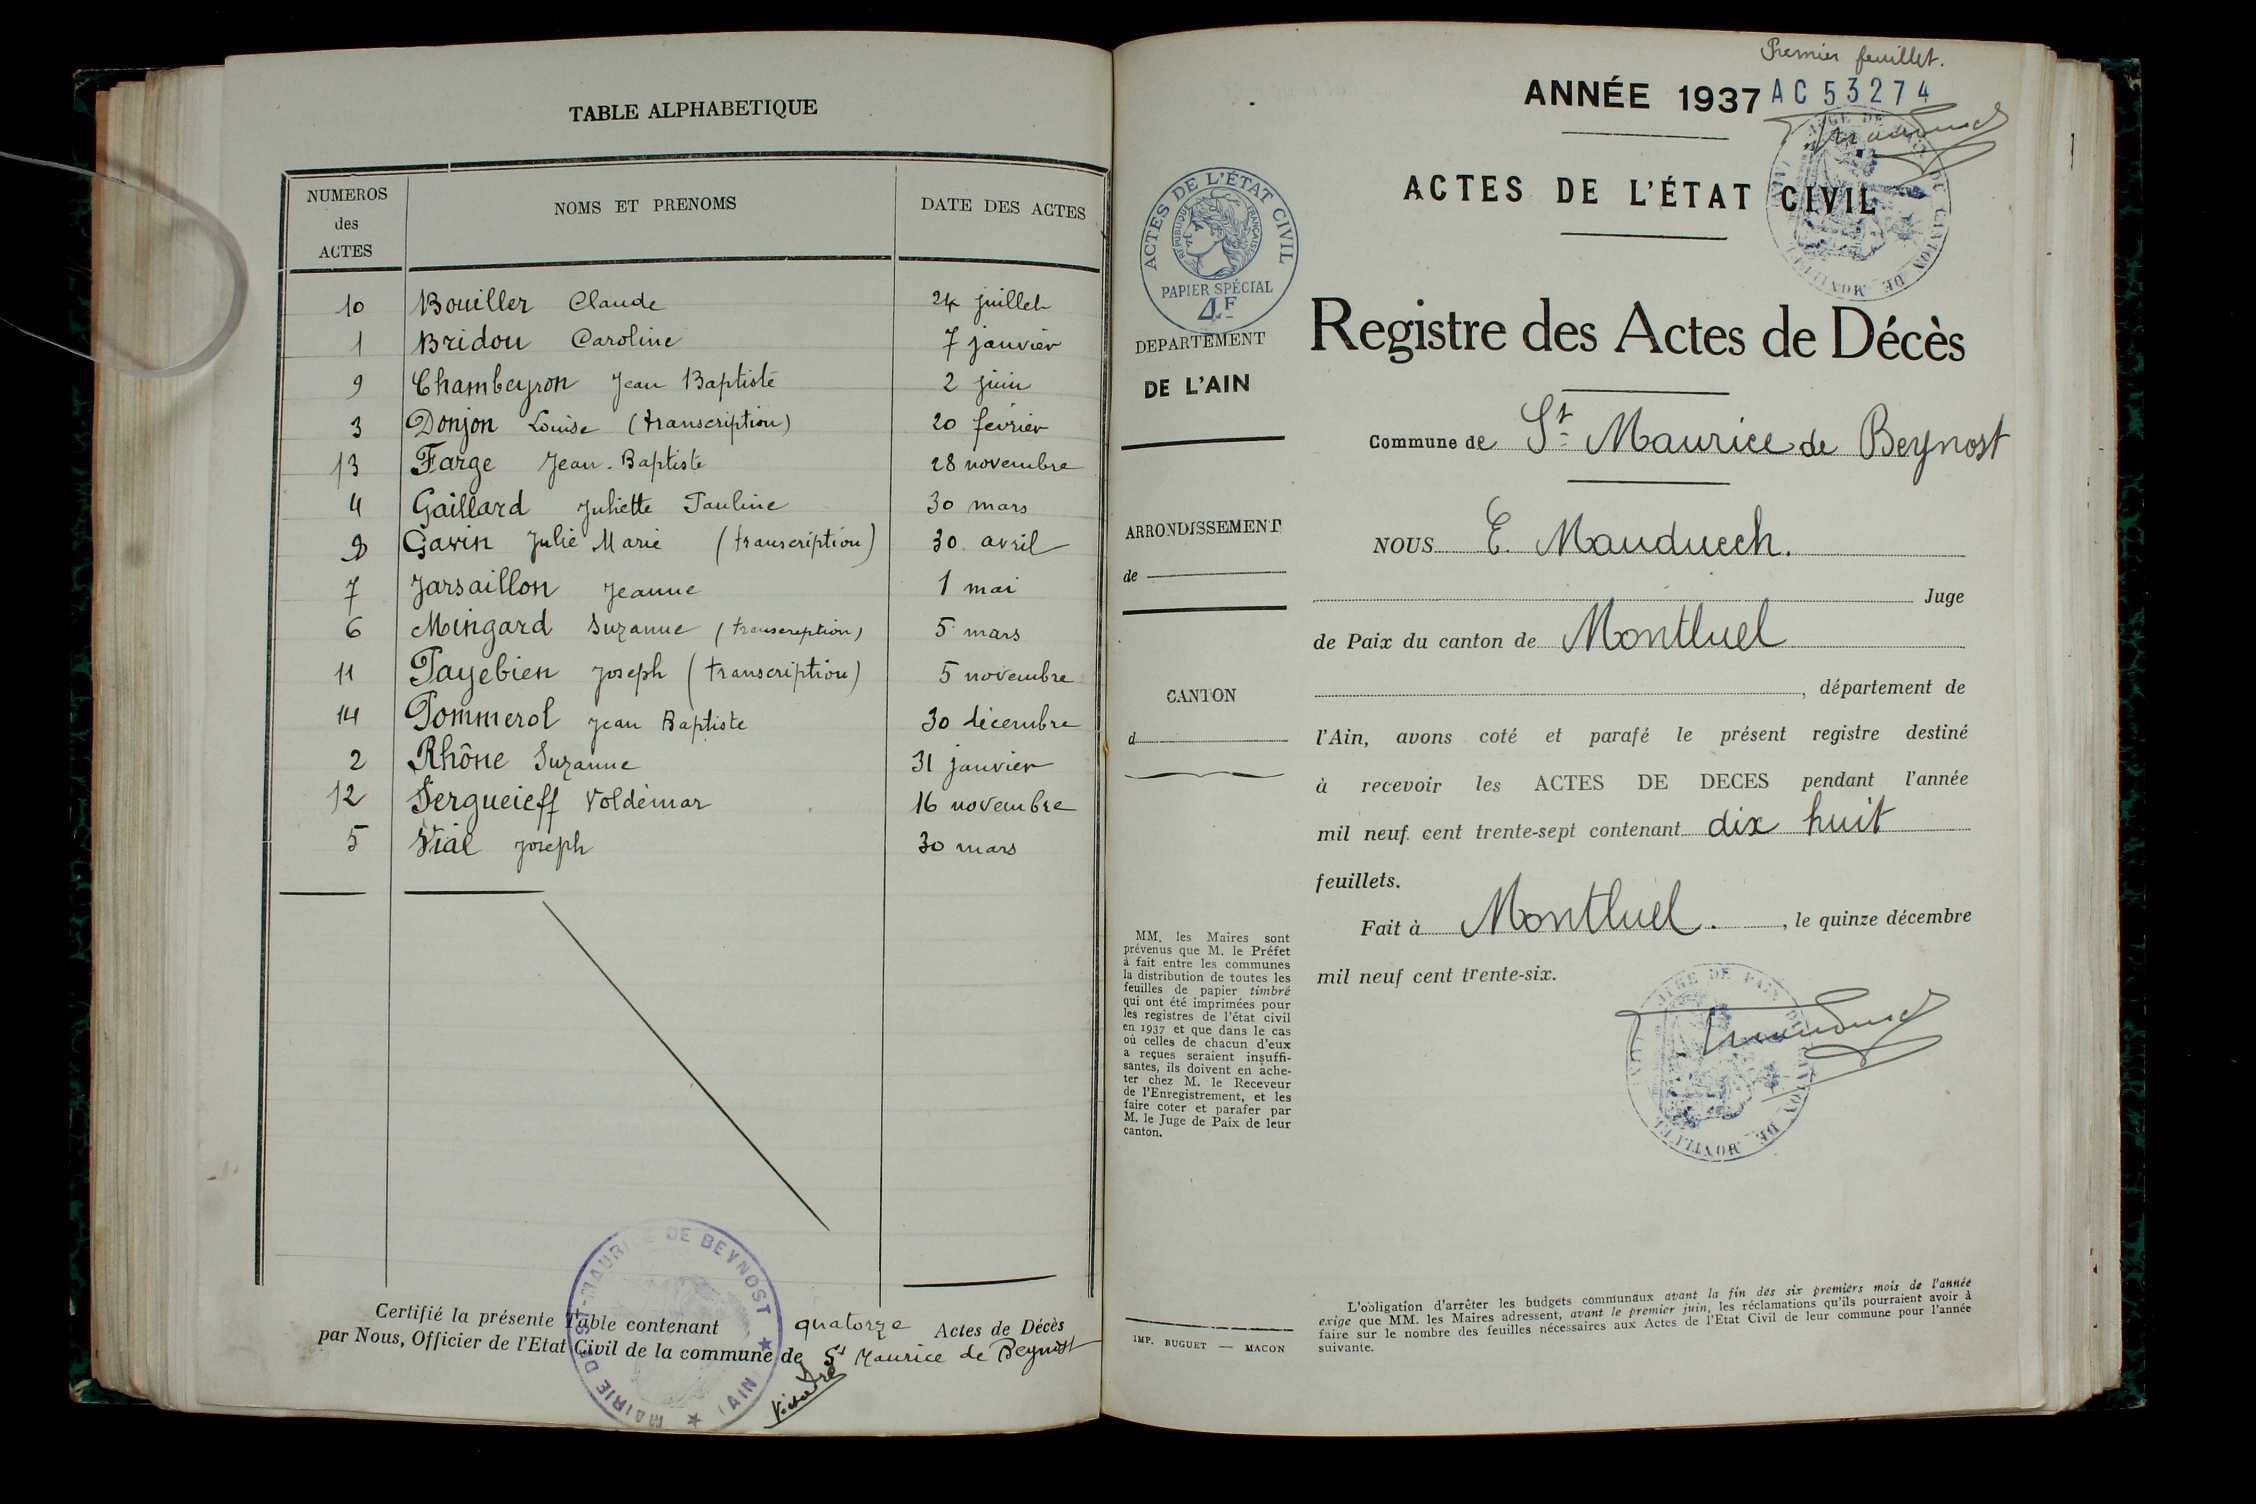 TABLE ALPHABETIQUE
NUMEROS des ACTES NOMS ET PRENOMS DATE DES ACTES
10 Bouiller Claude 24 juillet
1 Bridou Caroline 7 janvier
9 Chambeyron Jean Baptiste 2 juin
3 Donjon Louise (transcription) 20 février
13 Farge Jean-Baptiste 28 novembre
4 Gaillard Juliette Pauline 30 mars
Gavin Julie Marie (transcription) 30 avril
7 Jarsaillon Jeanne 1 mai
6 Mingard Suzanne (transcription) 5 mars
11 Payebien Joseph (transcription) 5 novembre
14 Pommerol Jean Baptiste 30 décembre
2 Rhône Suzanne 31 janvier
12 Sergueieff Voldémar 16 novembre
5 Vial Joseph 30 mars
Certifié la présente Table contenant quatorze Actes de Décès
par Nous, Officier de l'Etat Civil de la commune de St Maurice de Beynost
MAIRIE DE ST-MAURICE DE BEYNOST ★ (AIN) ★
Premier feuillet.
ANNÉE 1937 AC 53274
ACTES DE L'ÉTAT CIVIL
JUGE DE PAIX DU CANTON DE MONTLUEL
ACTES DE L'ÉTAT CIVIL
RÉPUBLIQUE FRANÇAISE
PAPIER SPÉCIAL
4F
DEPARTEMENT
DE L'AIN
ARRONDISSEMENT
de
CANTON
d
MM. les Maires sont
prévenus que M. le Préfet
à fait entre les communes
la distribution de toutes les
feuilles de papier timbré
qui ont été imprimées pour
les registres de l'état civil
en 1937 et que dans le cas
où celles de chacun d'eux
a reçues seraient insuffi-
santes, ils doivent en ache-
ter chez M. le Receveur
de l'Enregistrement, et les
faire coter et parafer par
M. le Juge de Paix de leur
canton.
IMP. BUGUET — MACON
Registre des Actes de Décès
Commune de St Maurice de Beynost
NOUS E. Mauduech.
Juge
de Paix du canton de Montluel
, département de
l'Ain, avons coté et parafé le présent registre destiné
à recevoir les ACTES DE DECES pendant l'année
mil neuf cent trente-sept contenant dix huit
feuillets.
Fait à Montluel. , le quinze décembre
mil neuf cent trente-six.
JUGE DE PAIX DU CANTON DE MONTLUEL
L'obligation d'arrêter les budgets communaux avant la fin des six premiers mois de l'année
exige que MM. les Maires adressent, avant le premier juin, les réclamations qu'ils pourraient avoir à
faire sur le nombre des feuilles nécessaires aux Actes de l'Etat Civil de leur commune pour l'année
suivante.